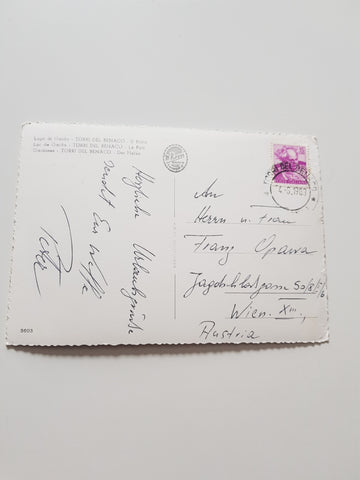 Lago di Garda - TORRI DEL BENACO - Il Porto
Lac de Garda - TORRI DEL BENACO - Le Port
Gardasee - TORRI DEL BENACO - Der Hafen
Herzliche Urlaubsgrüße
sendet Eur Neffe
Peter
3603
An
Herrn u. Frau
Franz Opawa
Jagdschloßgasse
Wien XIII,
Austria